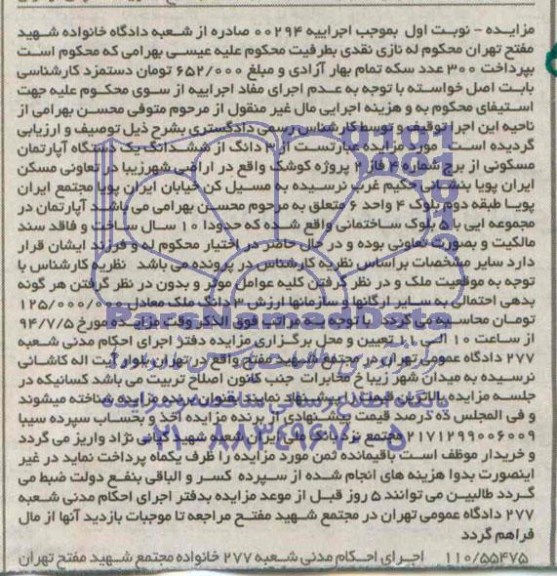 مزایده - نوبت اول بموجب اجراییه ۰۰۲۹۴ صادره از شعبه دادگاه خانواده شهید
مفتح تهران محکوم له نازی نقدی بطرفیت محکوم علیه عیسی بهرامی که محکوم است
بپرداخت ۳۰۰ عدد سکه تمام بهار آزادی و مبلغ ۶۵۲/۰۰۰ تومان دستمزد کارشناسی
بابت اصل خواسته با توجه به عدم اجرای مفاد اجراییه از سوی محکوم علیه جهت
استیفای محکوم به و هزینه اجرایی مال غیر منقول از مرحوم متوفی محسن بهرامی از
ناحیه این اجرا توقیف و توسط کارشناس رسمی دادگستری بشرح ذیل توصیف و ارزیابی
گردیده است مورد مزایده عبارتست از ۳ دانگ از ششدانگ یک دستگاه آپارتمان
مسکونی از برج شماره ۴ فاز ۲ پروژه کوشک واقع در اراضی شهرزیبا در تعاونی مسکن
ایران پویا بنشانی حکیم غرب نرسیده به مسیل کن خیابان ایران پویا مجتمع ایران
پویا طبقه دوم بلوک ۴ واحد ۶ متعلق به مرحوم محسن بهرامی می باشد آپارتمان در
مجموعه ایی با ۵ بلوک ساختمانی واقع شده که حدودا ۱۰ سال ساخت و فاقد سند
مالکیت و بصورت تعاونی بوده و در حال حاضر در اختیار محکوم له و فرزند ایشان قرار
دارد سایر مشخصات بر اساس نظریه کارشناس در پرونده می باشد نظریه کارشناس با
توجه به موقعیت ملک و در نظر گرفتن کلیه عوامل موثر و بدون در نظر گرفتن هر گونه
بدهی احتمالی به سایر ارگانها و سازمانها ارزش ۳ دانگ ملک معادل ۱۲۵/۰۰۰/۰۰۰
تومان محاسبه می گردد با توجه به مراتب فوق الذکر وقت مزایده مورخ ۹۴/۷/۵
از ساعت ۱۰ الی ۱۱ تعیین و محل برگزاری مزایده دفتر اجرای احکام مدنی شعبه
۲۷۷ دادگاه عمومی تهران در مجتمع شهید مفتح واقع در تهران بلوار آیت اله کاشانی
نرسیده به میدان شهر زیبا خ مخابرات جنب کانون اصلاح تربیت می باشد کسانیکه در
جلسه مزایده بالاترین قیمت را پیشنهاد نمایند بعنوان برنده مزایده شناخته میشوند
و فی المجلس ده درصد قیمت پیشنهادی از برنده مزایده اخذ و بحساب سپرده سیبا
۲۱۷۱۲۹۹۰۰۶۰۰۹ مجتمع نزد بانک ملی ایران شعبه شهید گیانی نژاد واریز می گردد
و خریدار موظف است باقیمانده ثمن مورد مزایده را ظرف یکماه پرداخت نماید در غیر
اینصورت بدوا هزینه های انجام شده از سپرده کسر و الباقی بنفع دولت ضبط می
گردد طالبین می توانند ۵ روز قبل از موعد مزایده بدفتر اجرای احکام مدنی شعبه
۲۷۷ دادگاه عمومی تهران در مجتمع شهید مفتح مراجعه تا موجبات بازدید آنها از مال
فراهم گردد
۱۱۰/۵۵۴۷۵ اجرای احکام مدنی شعبه ۲۷۷ خانواده مجتمع شهید مفتح تهران
ParsNamadData
۰۲۱-۸۸۳۴۹۶۷۰-۵